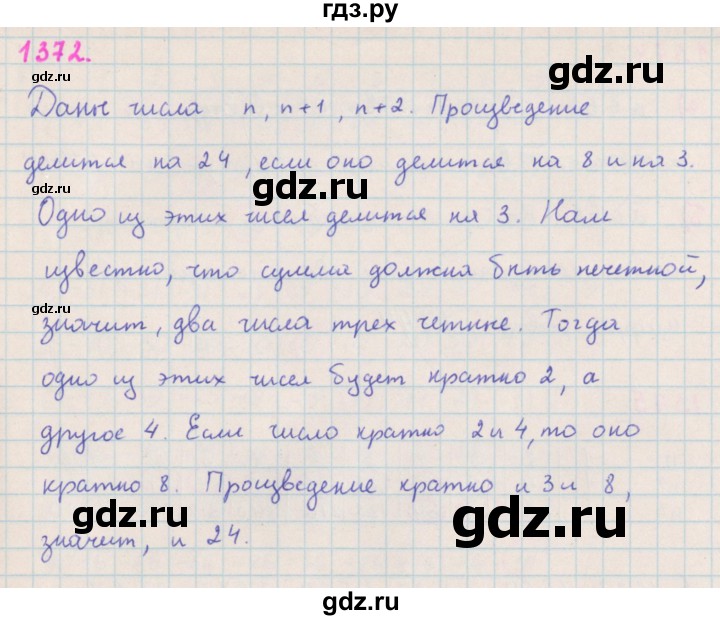 гдз.ру
1372.
gdz.ru
Даны числа n, n+1, n+2. Произведение
делится на 24, если оно делится на 8 и на 3.
gdz.ru
gdz.ru
Одно из этих чисел делится на 3. Нам
известно, что сумма должна быть нечетной,
gdz.ru
значит, два числа трех четные. Тогда
одно из этих чисел будет кратно 2, а
другое 4. Если число кратно 2 и 4, то оно
кратно 8. Произведение кратно и 3 и 8,
gdz.ru
gdz.ru
значит, и 24.
gdz.ru